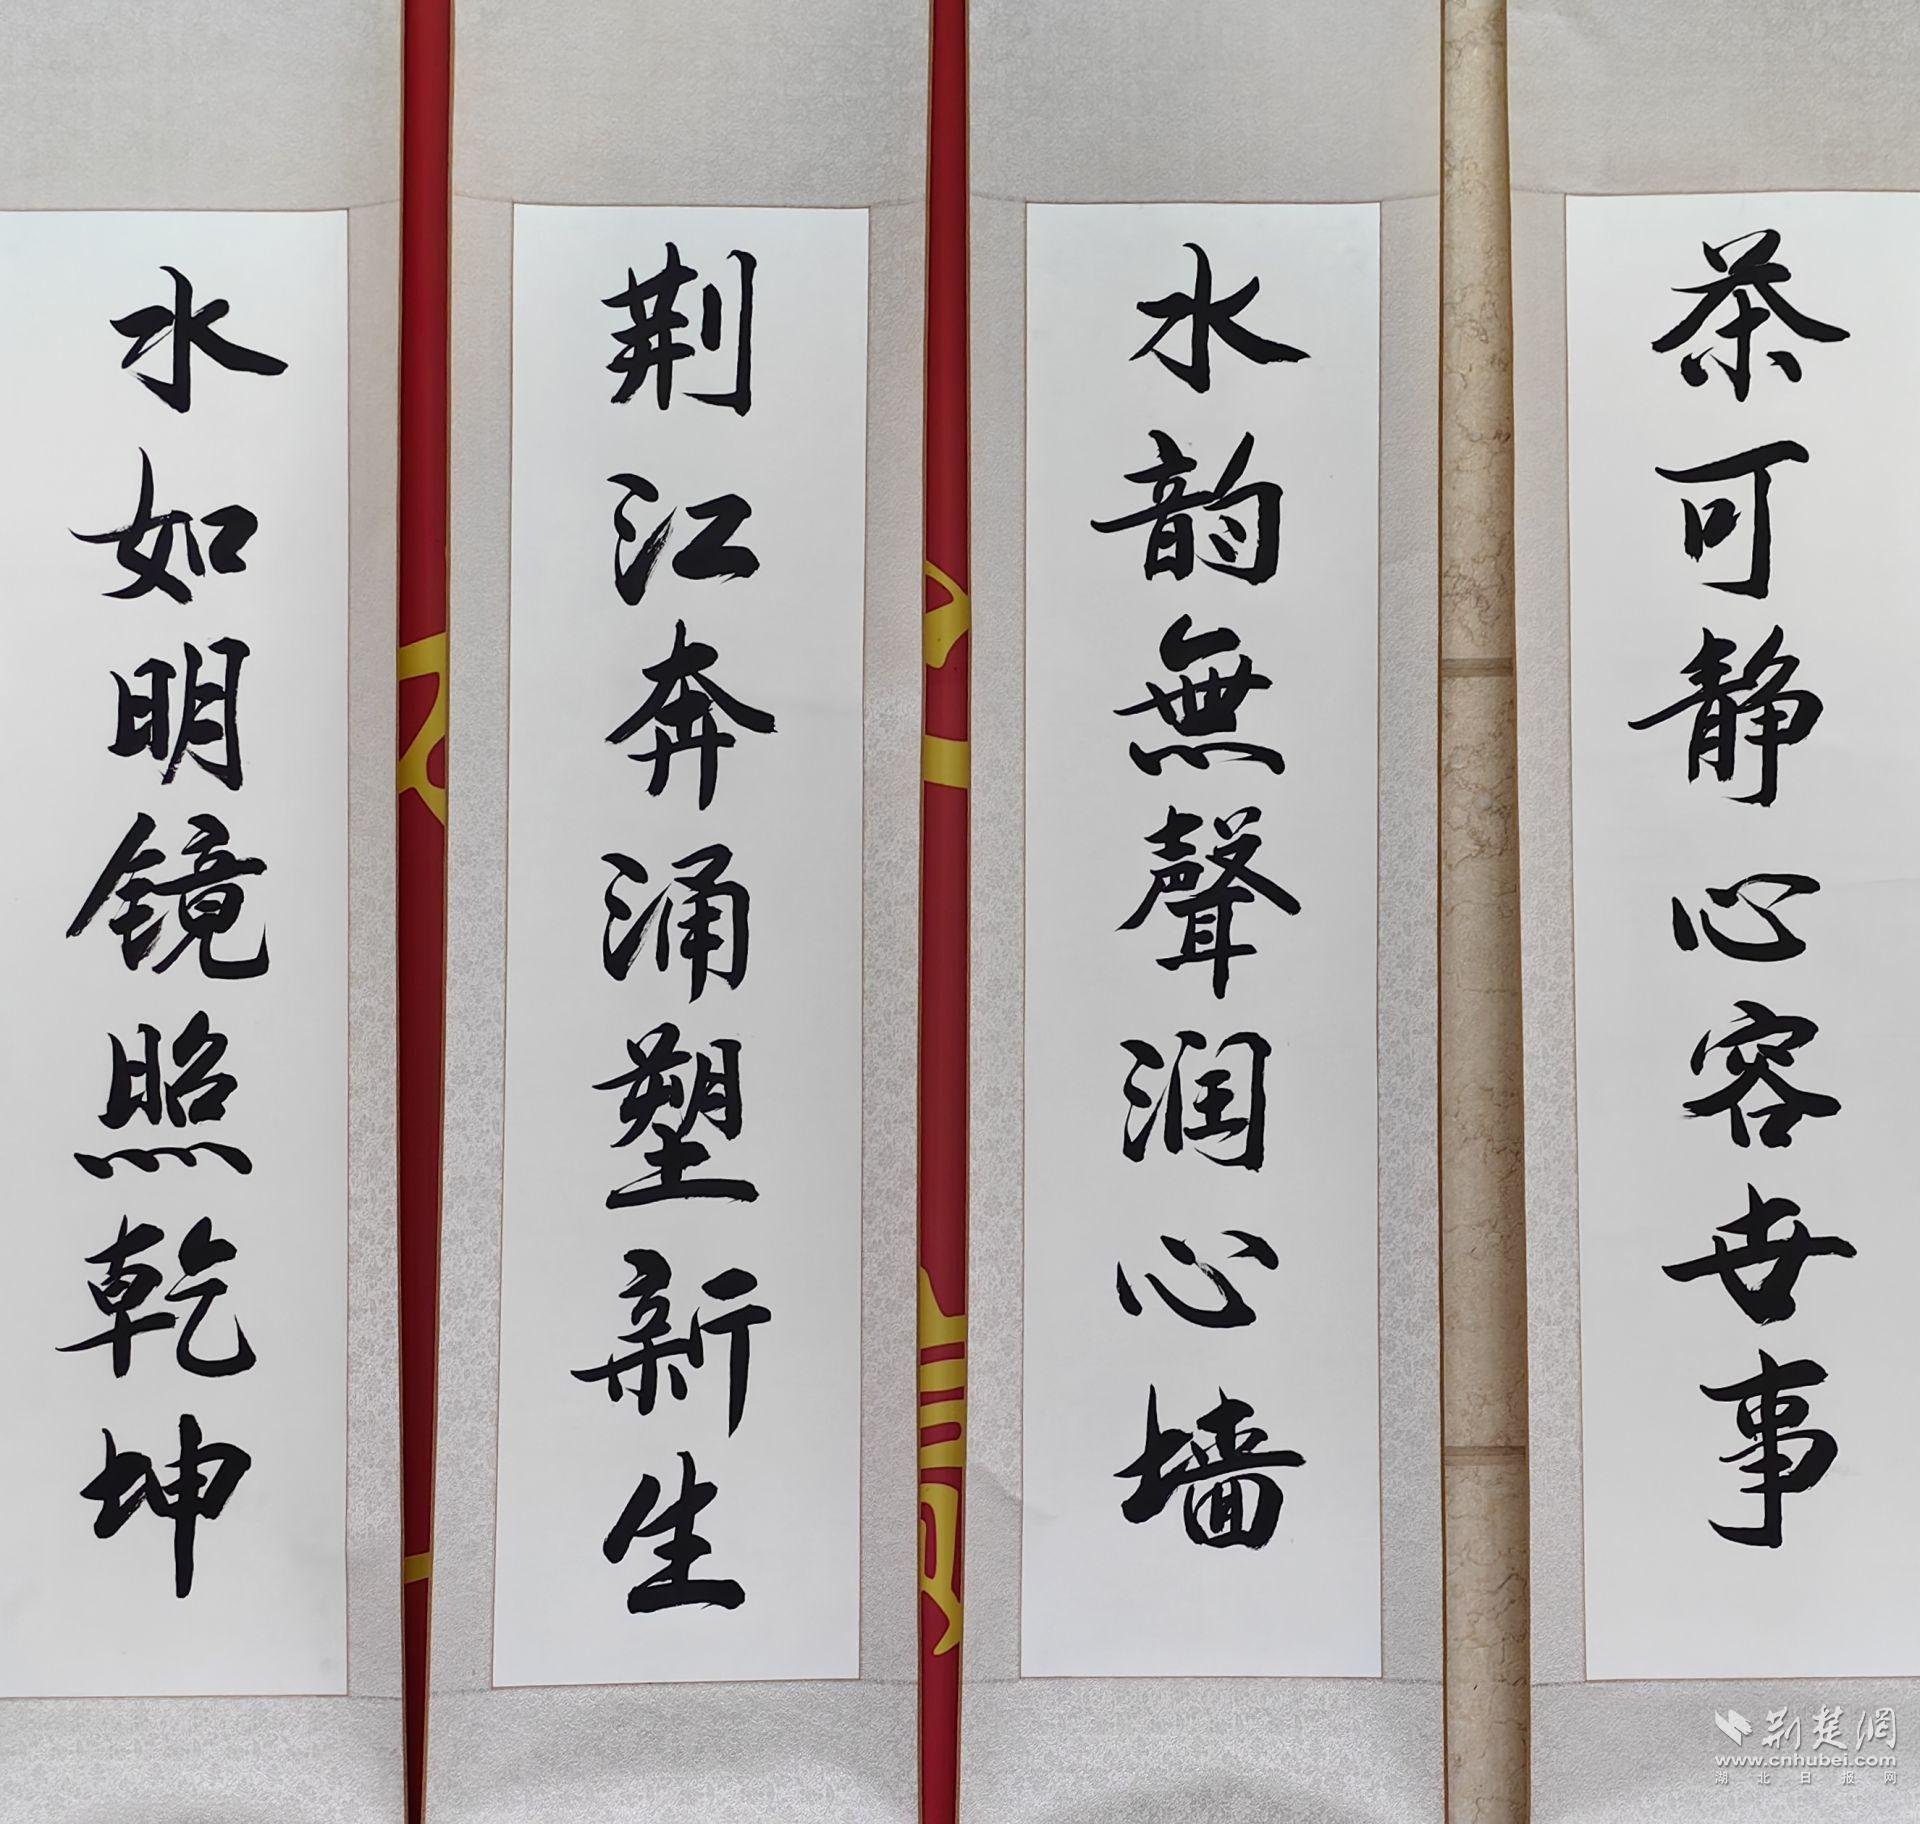 茶可静心容世事
水韵無聲润心墙
荆江奔涌塑新生
水如明镜照乾坤
荆楚網
www.cnhubei.com
湖北日报网